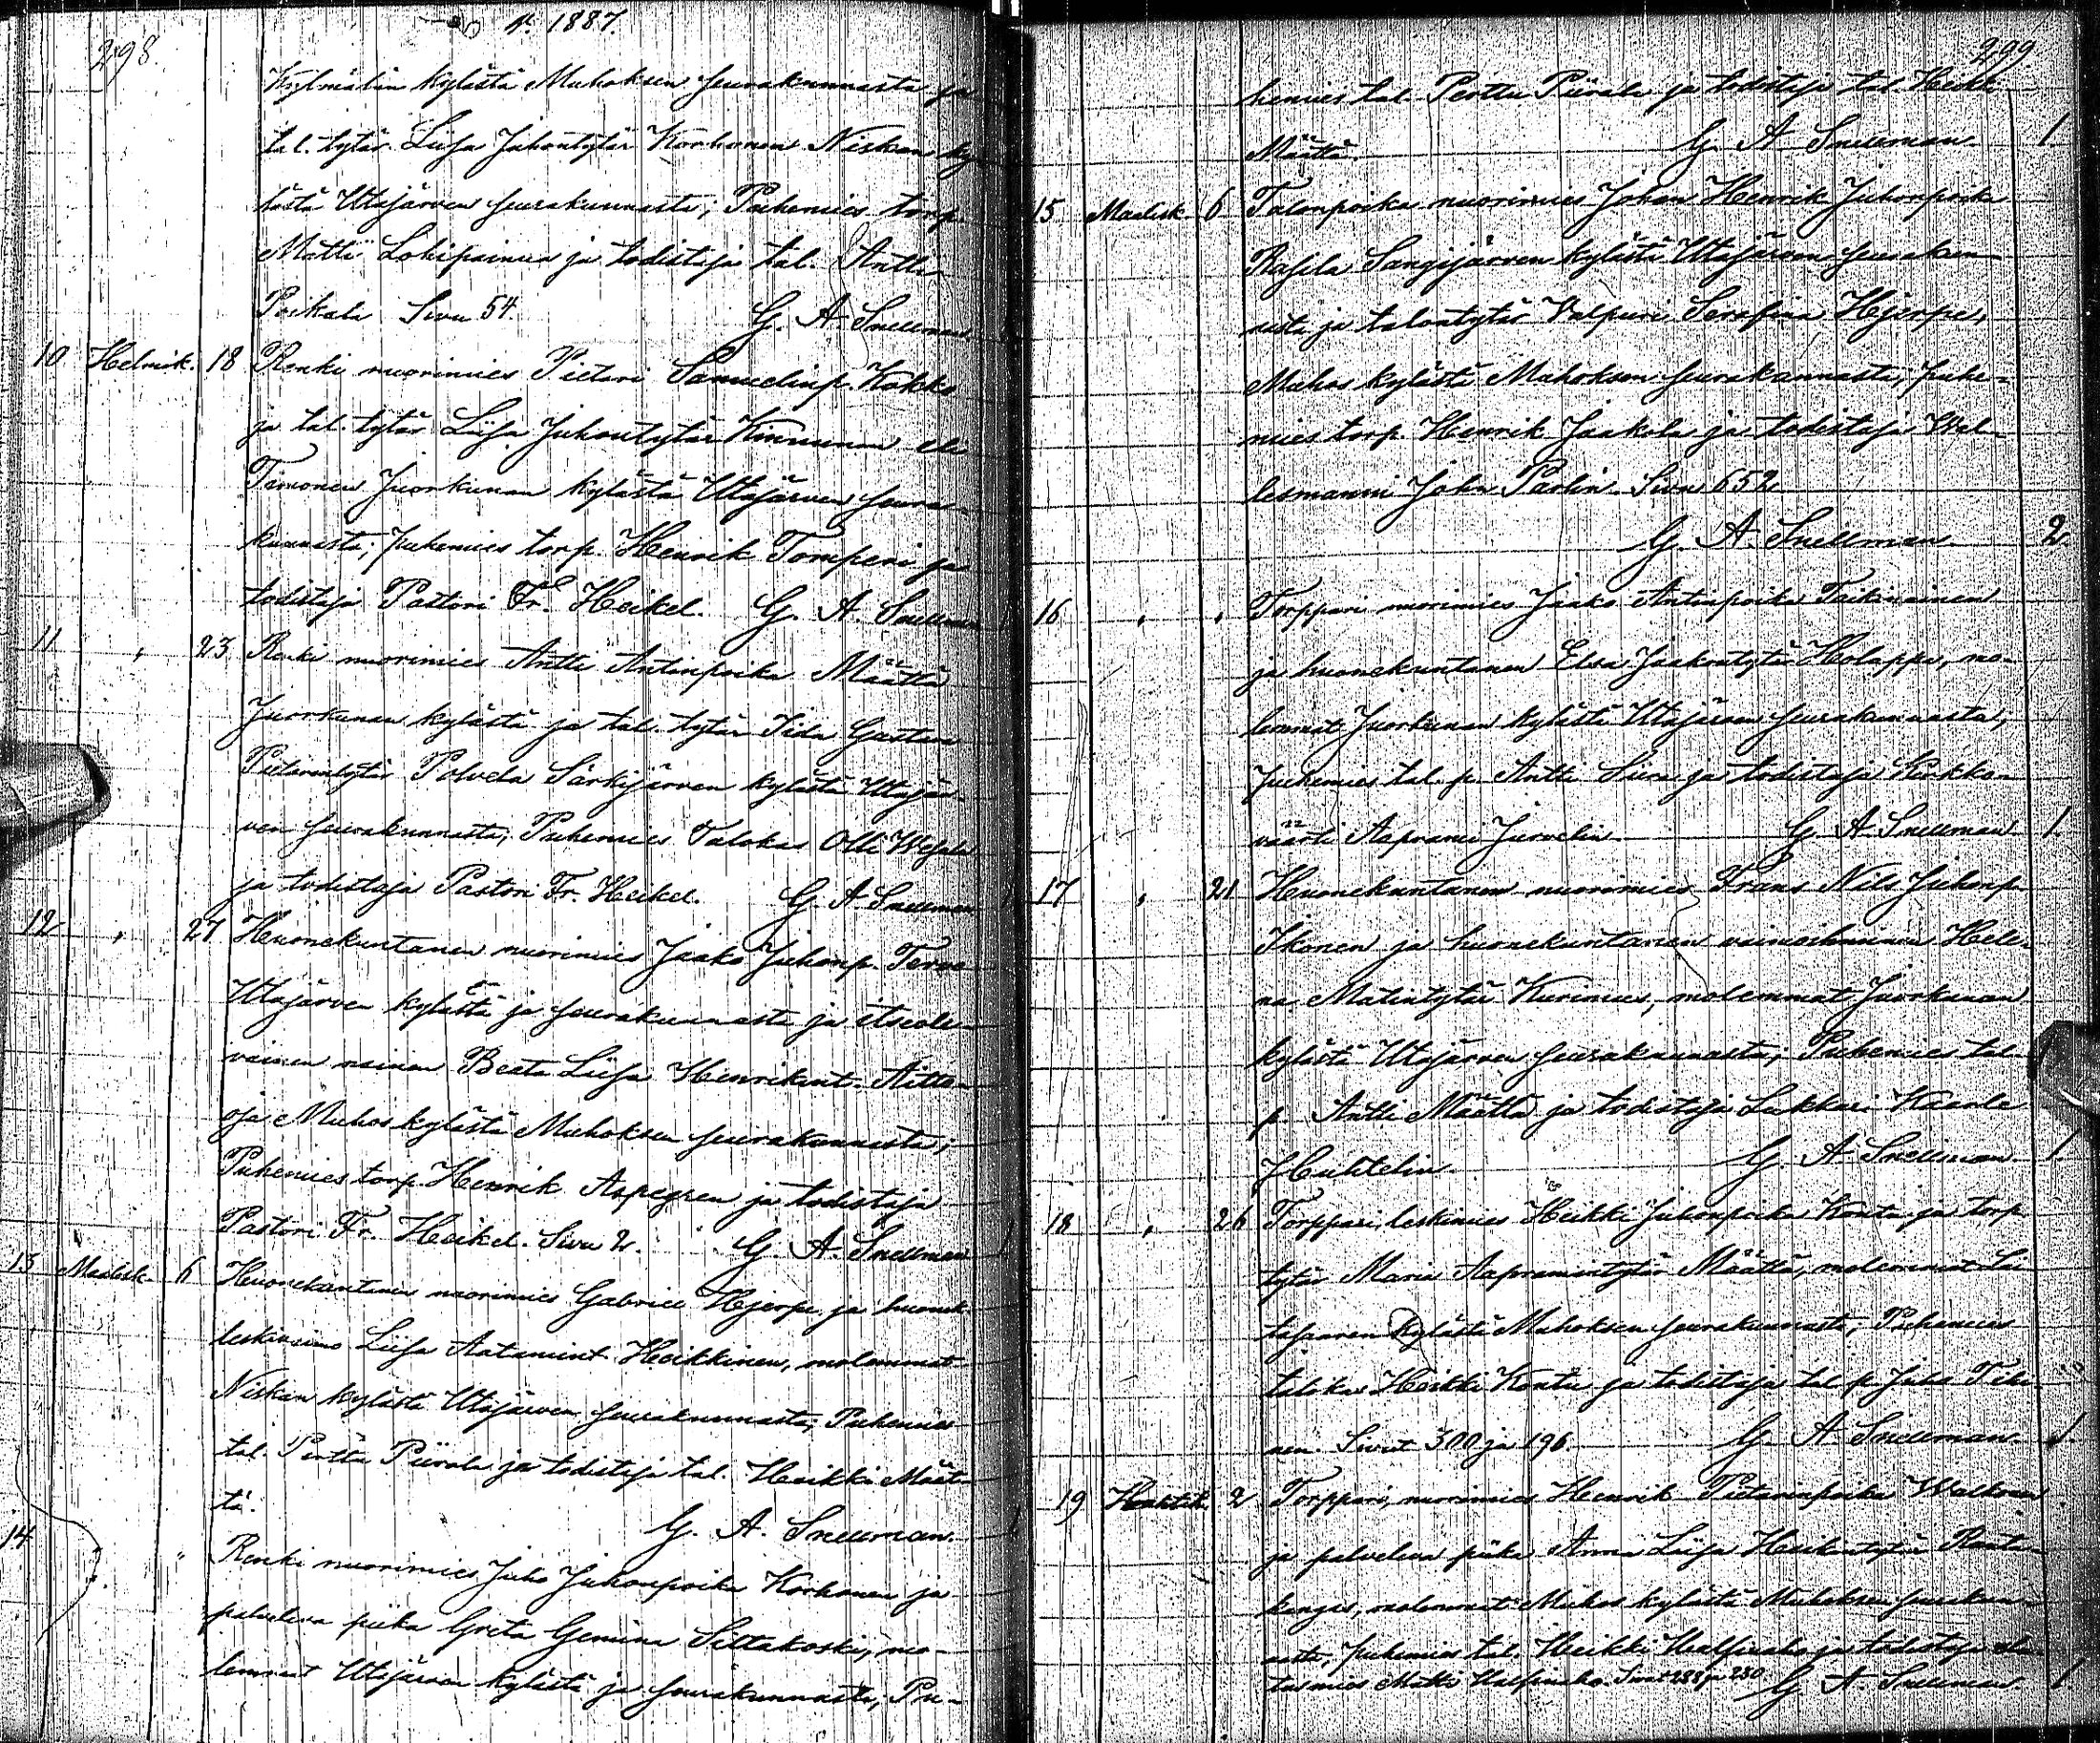 298.
v. 1887.
Kylmälän kylästä Muhoksen seurakunnasta ja
tal. tytär Liisa Juhontytär Korhonen Niskan ky-
lästä Utajärven seurakunnasta; Puhemies torp.
Matti Lohipainua ja todistaja tal. Antti
Poikala Sivu 54. G. A. Snellman
10 Helmik. 18 Renki nuorimies Pietari Samuelinp. Kokko
ja tal. tytär Liisa Juhontytär Kinnunen eli
Timonen Juorkunan kylästä Utajärven seura-
kunnasta; puhemies torp. Henrik Tomperi ja
todistaja Pastori Fr. Heikel. G. A. Snellman
11 , 23 Renki nuorimies Antti Antinpoika Määttä
Juorkunan kylästä ja tal. tytär Iida Gustava
Pietarintytär Polvela Särkijärven kylästä Utajär-
ven seurakunnasta; Puhemies Talokas Olli
ja todistaja Pastori Fr. Heikel. G. A. Snellman
12 , 27 Huonekuntanen nuorimies Jaako Juhonp. Terva
Utajärven kylästä ja seurakunnasta ja itseole-
vainen nainen Beata Liisa Henrikint. Aitto-
oja Muhos kylästä Muhoksen seurakunnasta;
Puhemies torp. Henrik Aspegren ja todistaja
Pastori Fr. Heikel. Sivu 2. G. A. Snellman
13 Maalisk. 6 Huonekuntanen nuorimies Gabriel Hjerpe ja huonek.
leskivaimo Liisa Aatamint. Heikkinen, molemmat
Niskan kylästä Utajärven seurakunnasta; Puhemies
tal. Perttu Piirala ja todistaja tal. Heikki Määt-
tä. G. A. Snellman.
14 " Renki nuorimies Juho Juhonpoika Korhonen ja
palveleva piika Greta Gemina Siltakoski, mo-
lemmat Utajärven kylästä ja seurakunnasta; Pu-
299
hemies tal. Perttu Piirala ja todistaja tal. Heikki
Määttä. G. A. Snellman. 1
15 Maalisk. 6 Talonpoika nuorimies Johan Henrik Juhonpoika
Rasila Sangijärven kylästä Utajärven seurakun-
nasta ja talontytär Valpuri Serafina Hjerpe,
Muhos kylästä Muhoksen seurakunnasta; puhe-
mies torp. Henrik Jaakola ja todistaja Wal-
lesmanni John Paolin. Sivu 652
G. A. Snellman. 2
16 , , Torppari nuorimies Jaako Antinpoika Taikinainen
ja huonekuntanen Elsa Jaakontytär Holappa, mo-
lemmat Juorkunan kylästä Utajärven seurakunnasta;
puhemies tal. p. Antti Siira ja todistaja Kirkko-
väärti Aaprami Jurvelin. G. A. Snellman 1
17 , 21 Huonekuntanen nuorimies Frans Nils Juhonp.
Ikonen ja huonekuntanen vaimoihminen Hele-
na Matintytär Kurimus, molemmat Juorkunan
kylästä Utajärven seurakunnasta; Puhemies tal.
p. Antti Määttä ja todistaja Lukkari Kaarle
Huhtelin. G. A. Snellman. 1
18 , 26 Torppari leskimies Heikki Juhonpoika Konttu ja torp.
tytär Maria Aapramintytär Määttä, molemmat Lai-
tasaaren kylästä Muhoksen seurakunnasta; Puhemies
talokas Heikki Konttu ja todistaja tal. p. Juho Tik-
nen. Sivut 300 ja 196. G. A. Snellman. 1
19 Huhtik. 2 Torppari, nuorimies Henrik Pietarinpoika Waltonen
ja palveleva piika Anna Liisa Heikintytär Ranta-
kangas, molemmat Muhos kylästä Muhoksen seurakun-
nasta; puhemies tal. Heikki ja todistaja
Matti Sivut 288 ja 280 G. A. Snellman. 1